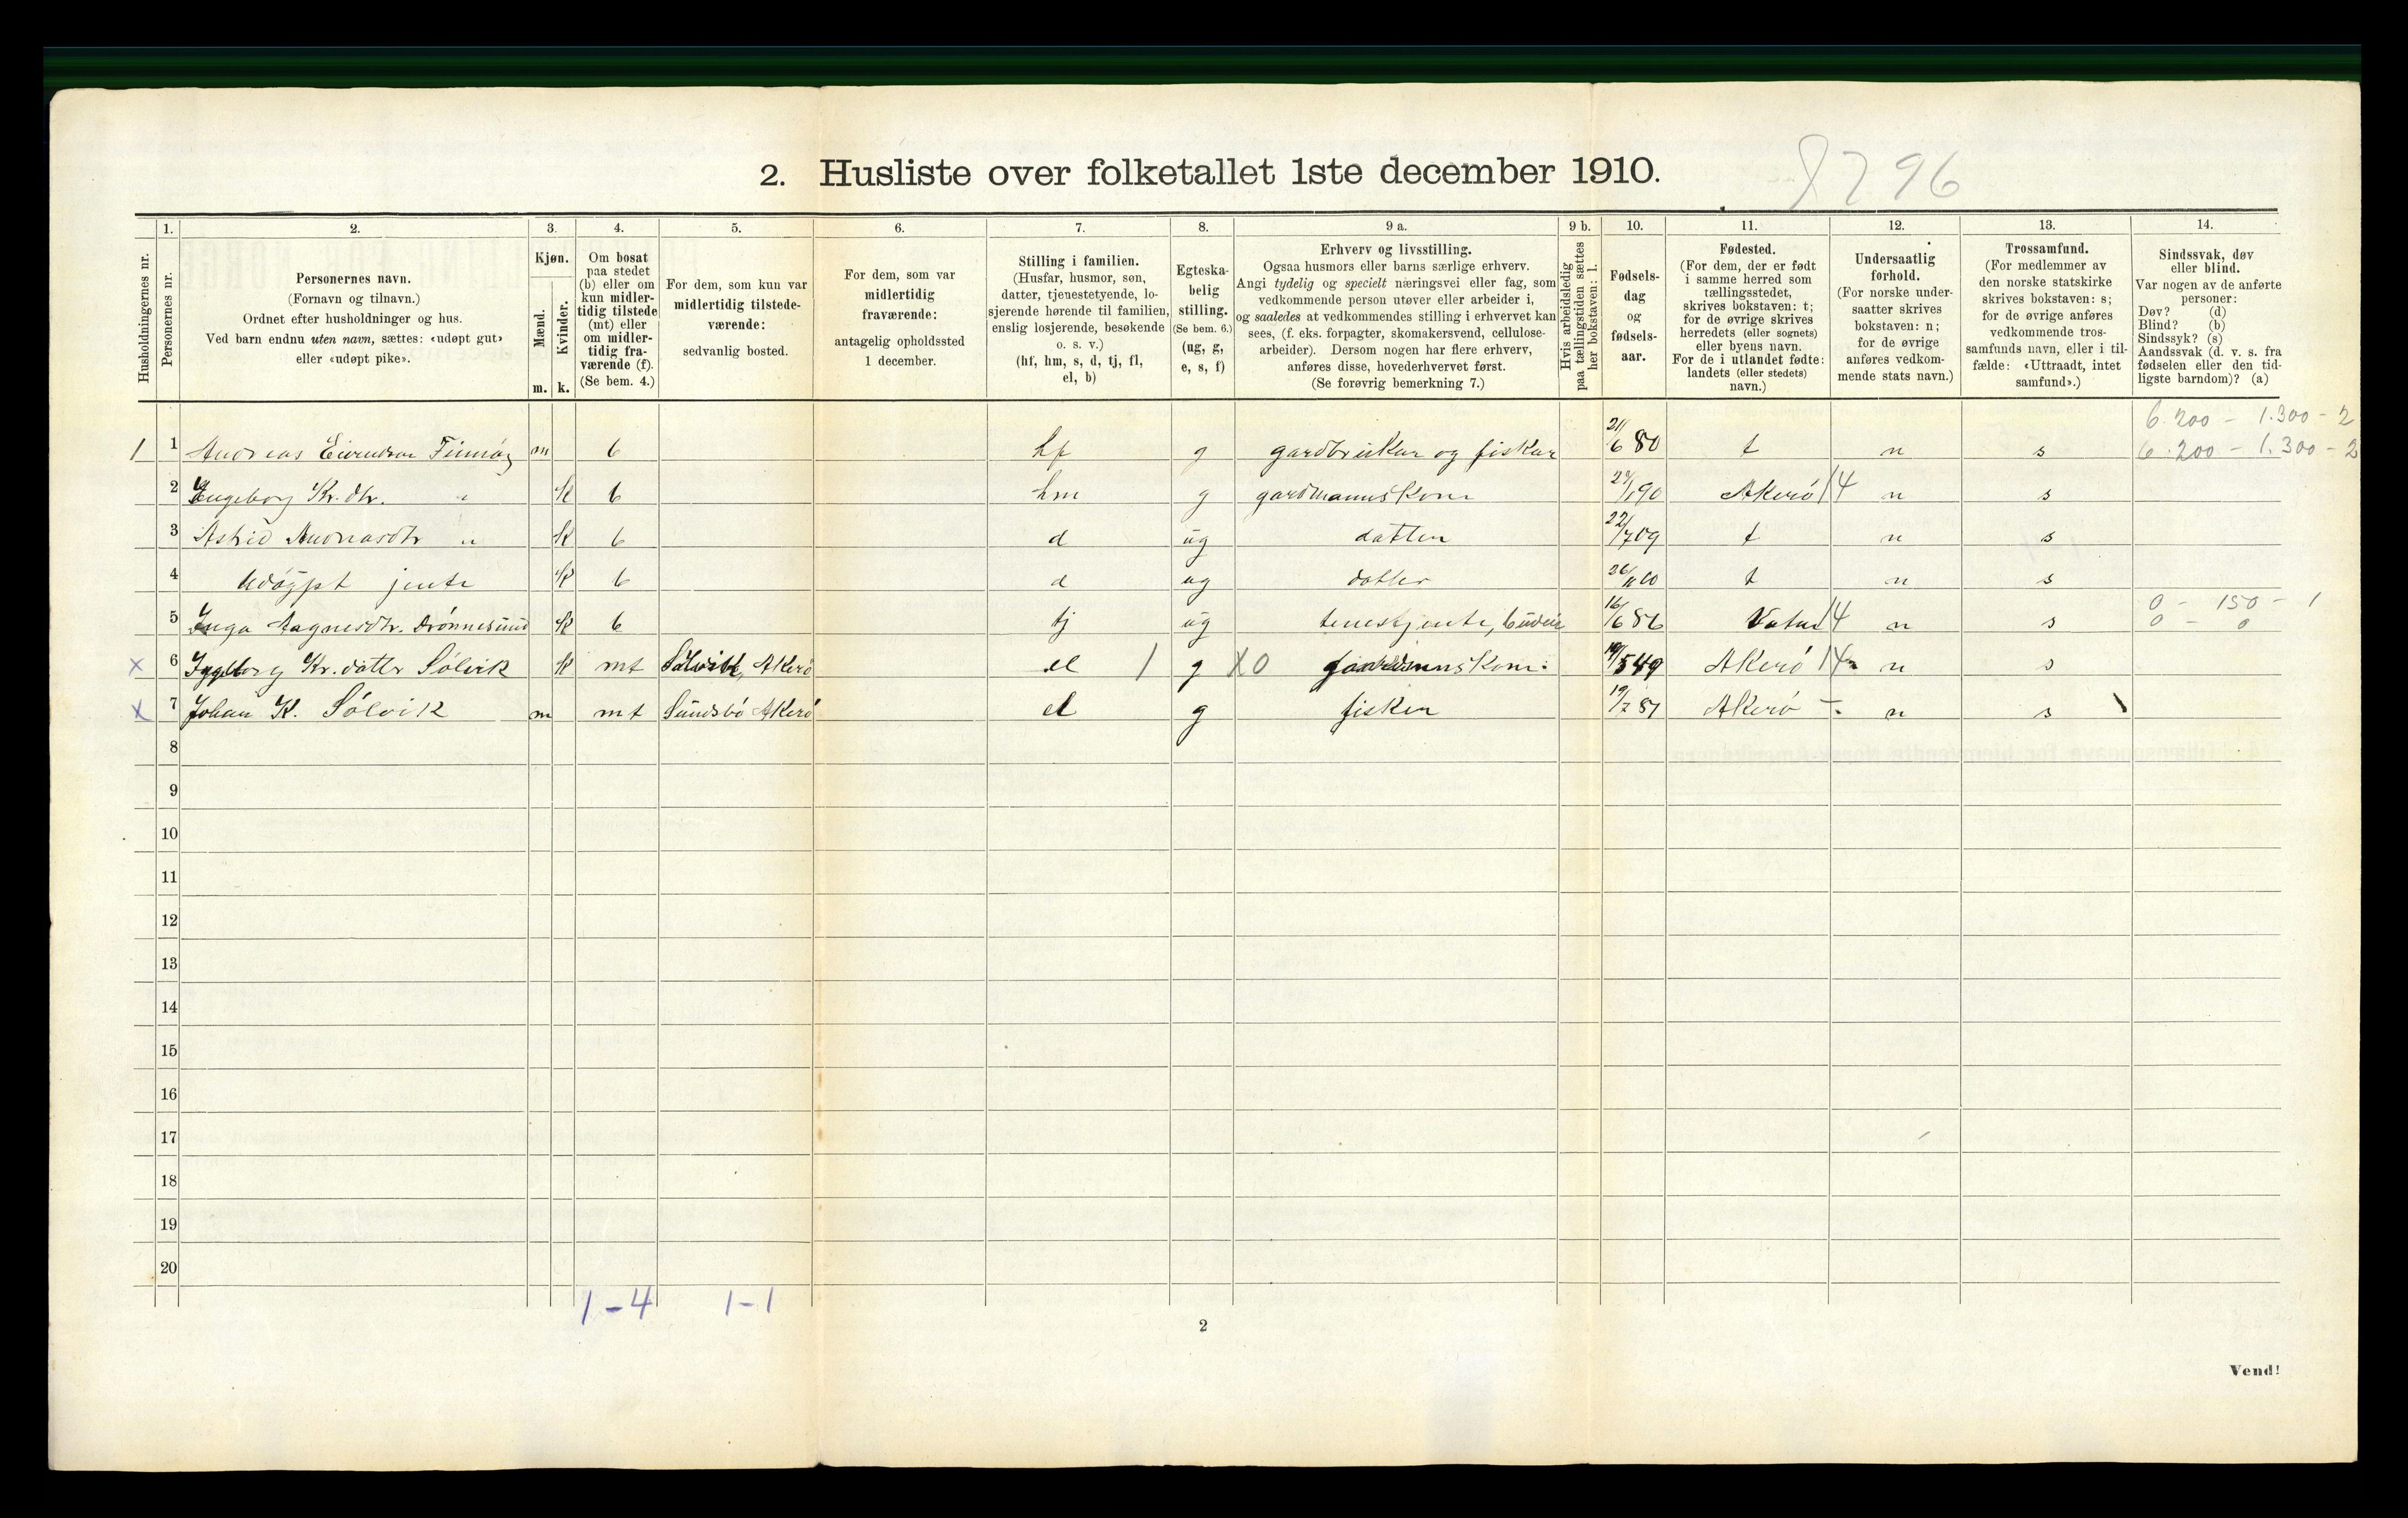 8296
2. Husliste over folketallet 1ste december 1910.
Husholdningernes nr.
1. Personernes nr.
2. Personernes navn. (Fornavn og tilnavn.) Ordnet efter husholdninger og hus. Ved barn endnu uten navn, sættes: «udøpt gut» eller «udøpt pike».
3. Kjøn. Mænd. m. Kvinder. k.
4. Om bosat paa stedet (b) eller om kun midlertidig tilstede (mt) eller om midlertidig fraværende (f). (Se bem. 4.)
5. For dem, som kun var midlertidig tilstedeværende: sedvanlig bosted.
6. For dem, som var midlertidig fraværende: antagelig opholdssted 1 december.
7. Stilling i familien. (Husfar, husmor, søn, datter, tjenestetyende, losjerende hørende til familien, enslig losjerende, besøkende o. s. v.) (hf, hm, s, d, tj, fl, el, b)
8. Egteskabelig stilling. (Se bem. 6.) (ug, g, e, s, f)
9 a. Erhverv og livsstilling. Ogsaa husmors eller barns særlige erhverv. Angi tydelig og specielt næringsvei eller fag, som vedkommende person utøver eller arbeider i, og saaledes at vedkommendes stilling i erhvervet kan sees, (f. eks. forpagter, skomakersvend, cellulosearbeider). Dersom nogen har flere erhverv, anføres disse, hovederhvervet først. (Se forøvrig bemerkning 7.)
9 b. Hvis arbeidsledig paa tællingstiden sættes her bokstaven: l.
10. Fødselsdag og fødselsaar.
11. Fødested. (For dem, der er født i samme herred som tællingsstedet, skrives bokstaven: t; for de øvrige skrives herredets (eller sognets) eller byens navn. For de i utlandet fødte: landets (eller stedets) navn.)
12. Undersaatlig forhold. (For norske undersaatter skrives bokstaven: n; for de øvrige anføres vedkommende stats navn.)
13. Trossamfund. (For medlemmer av den norske statskirke skrives bokstaven: s; for de øvrige anføres vedkommende trossamfunds navn, eller i tilfælde: «Uttraadt, intet samfund».)
14. Sindssvak, døv eller blind. Var nogen av de anførte personer: Døv? (d) Blind? (b) Sindssyk? (s) Aandssvak (d. v. s. fra fødselen eller den tidligste barndom)? (a)
6.200 - 1.300 - 2
1 1 Andreas Eivendson Finnøy m b hf g gardbrukar og fiskar 21/6 80 t n s 6.200 - 1.300 - 2
2 Engeborg Kr.dtr. " k b hm g gardmannskone 27/1 90 Akerö 14 n s
3 Astrid Andreasdtr " k b d ug datter 22/7 09 t n s
4 Udøypt jente k b d ug datter 26/11 10 t n s
0 - 150 - 1
5 Inga Magnesdtr. Drønnesund k b tj ug tenestjente, budeie 16/6 86 Vatne 14 n s 0 - 0
x 6 Ingeborg Kr.dattr Sölvik k mt Sölvik, Akerö el 1 g X0 gardmannskone. 19/5 49 Akerö 14 n s
x 7 Johan K. Sölvik m mt Sundsbö Akerö el g fisker 19/7 81 Akerö - n s
8
9
10
11
12
13
14
15
16
17
18
19
20
1-4 1-1
2
Vend!